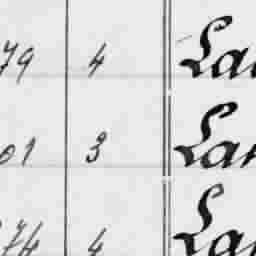 79 4 La
01 3 Lan
74 4 Lan